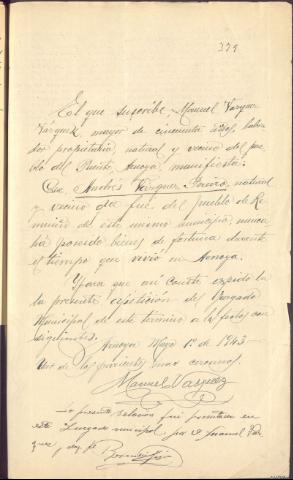 371
El que suscribe, Manuel Vazquez
Vazquez, mayor de cincuenta años, labra-
dor propietario, natural y vecino del pue-
blo del Puente, Arnoya, manifiesta:
Que Andrés Vázquez Pareiro, natural
y vecino que fué del pueblo de Re-
muiño de este mismo municipio, nunca
ha poseido bienes de fortuna durante
el tiempo que vivió en Arnoya.
Y para que así conste expido la
la presente a petición del Juzgado
Municipal de este término a los fines con-
siguientes. Arnoya Mayo 1º de 1943 -
Uno de los parientes mas cercanos.
Manuel Vazquez
La presente relación fué presentada en
este Juzgado municipal por D Manuel Vaz-
quez, y doy fé